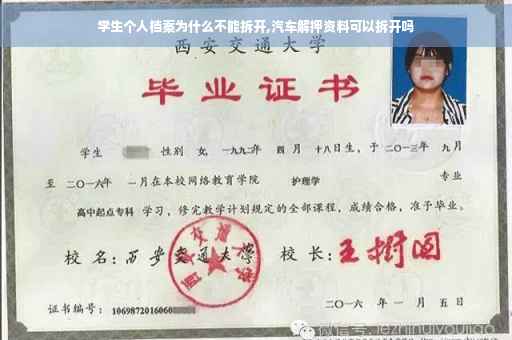 学生个人档案为什么不能拆开,汽车解押资料可以拆开吗
西安交通大学
毕业证书
学生 性别 女, 一九九二年 四 月 十八日生, 于 二〇一三年 九月
至 二〇一六年 一月在本校网络教育学院 护理学 专业
高中起点专科 学习, 修完教学计划规定的全部课程, 成绩合格, 准予毕业。
校 名: 西安交通大学 校 长: 王树国
西安交通大学
证书编号: 1069872016060
二〇一六 年 一 月 五 日
微信号: jezhihuiyoujiao